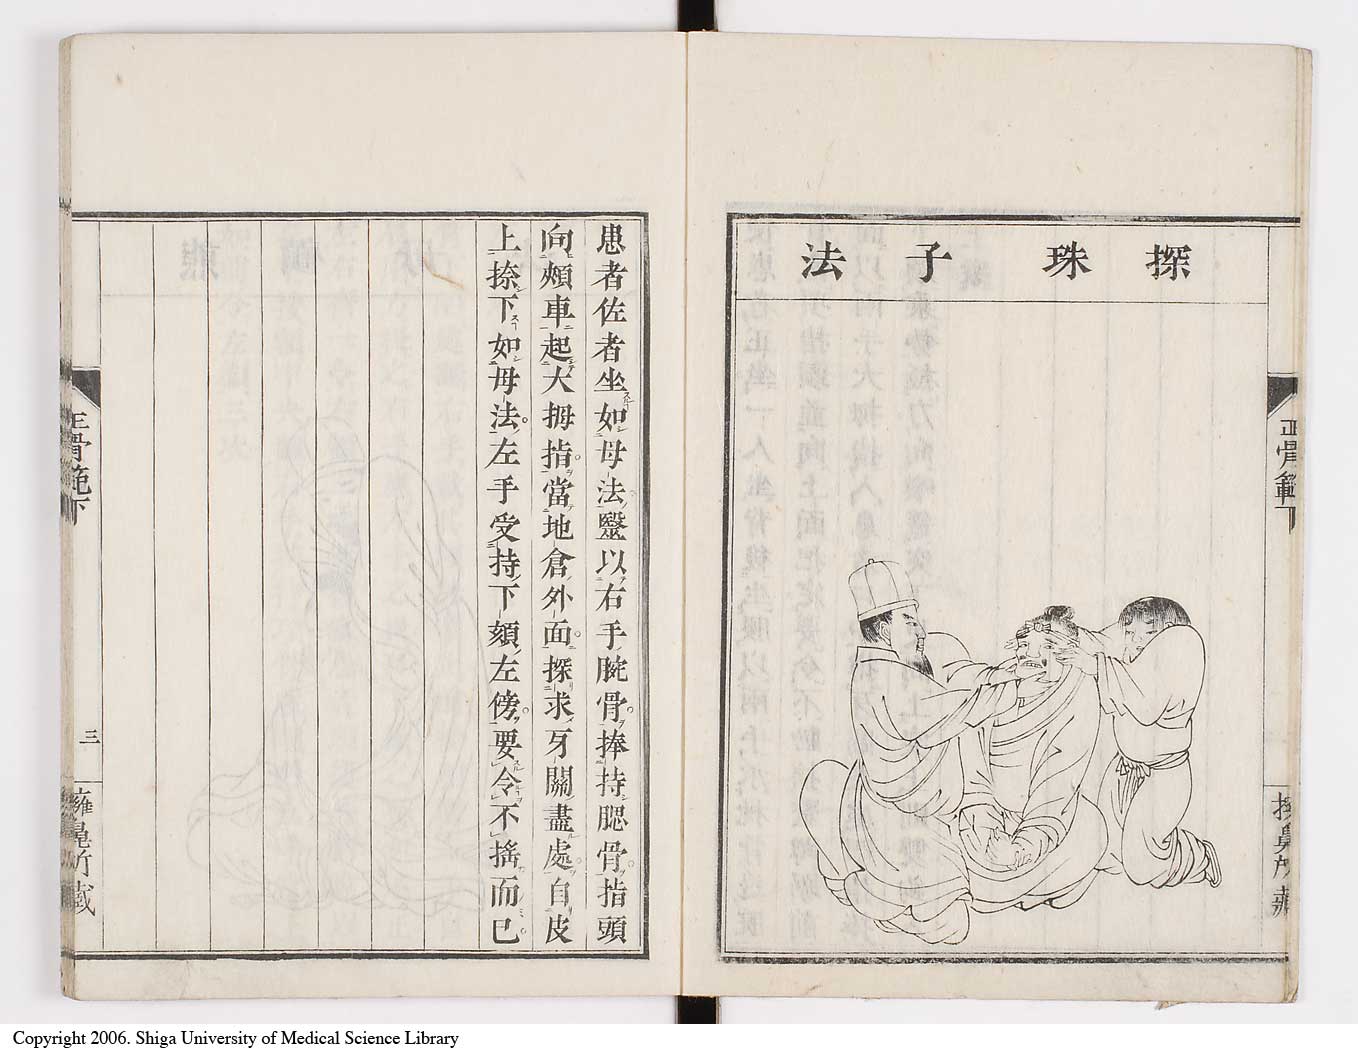 探珠子法
正骨範下
患者佐者坐如母法毉以右手腕骨捧持腮骨指頭
向頰車起大拇指當地倉外面探求牙關盡處自皮
上捺下如母法左手受持下頦左傍要令不搖而已
正骨範下
三
Copyright 2006. Shiga University of Medical Science Library